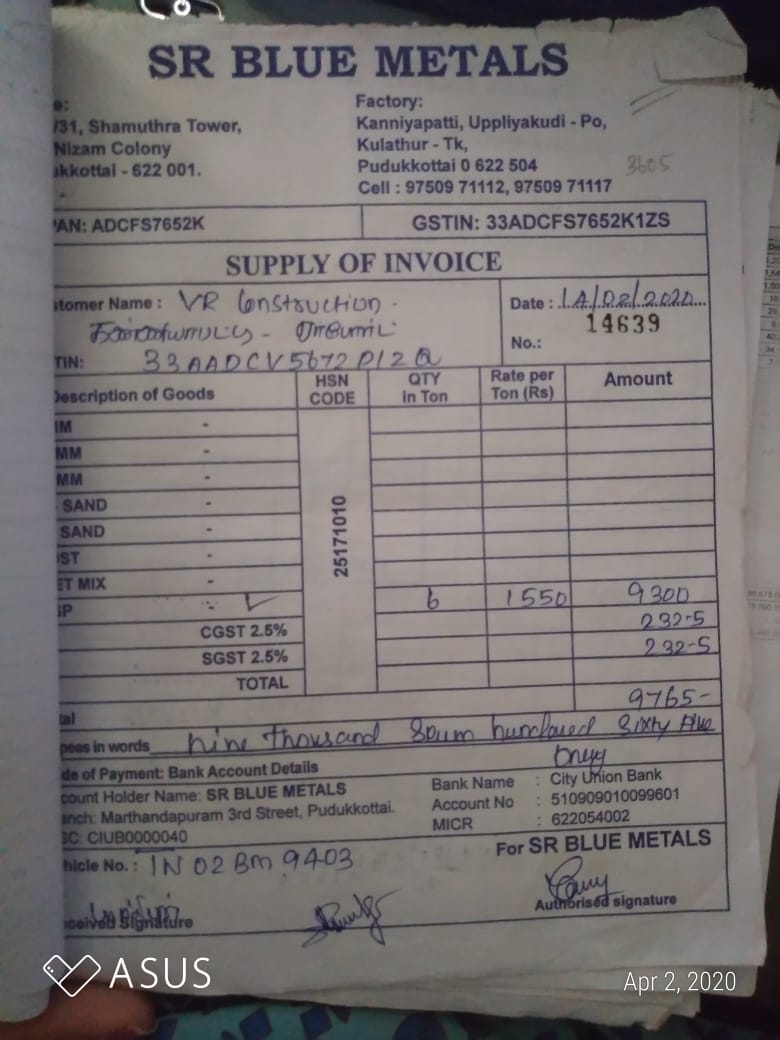 SR BLUE METALS
/31, Shamuthra Tower,
Nizam Colony
ukkottai - 622 001.
Factory:
Kanniyapatti, Uppliyakudi - Po,
Kulathur - Tk,
Pudukkottai 0 622 504
Cell : 97509 71112, 97509 71117
3605
AN: ADCFS7652K
GSTIN: 33ADCFS7652K1ZS
SUPPLY OF INVOICE
stomer Name : VR Construction
Date : 14/02/2020
No.: 14639
TIN: 33AADCV5672P1ZQ
Description of Goods HSN CODE QTY in Ton Rate per Ton (Rs) Amount
MM -
MM -
MM -
SAND -
SAND -
ST -
ET MIX -
25171010
P - 6 1550 9300
CGST 2.5% 232-5
SGST 2.5% 232-5
TOTAL
tal 9765-
pees in words nine thousand hundred Sixty five
only
de of Payment: Bank Account Details
count Holder Name: SR BLUE METALS
anch: Marthandapuram 3rd Street, Pudukkottai.
SC: CIUB0000040
Bank Name : City Union Bank
Account No : 510909010099601
MICR : 622054002
hicle No. : TN 02 BM 9403
For SR BLUE METALS
ceived Signature
Authorised signature
ASUS
Apr 2, 2020